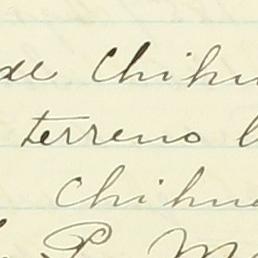 de Chihu
terreno l
Chihua
P. M